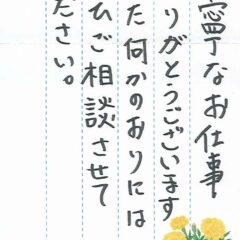 寧なお仕事
りがとうございます
た何かのおりには
ひご相談させて
ださい。